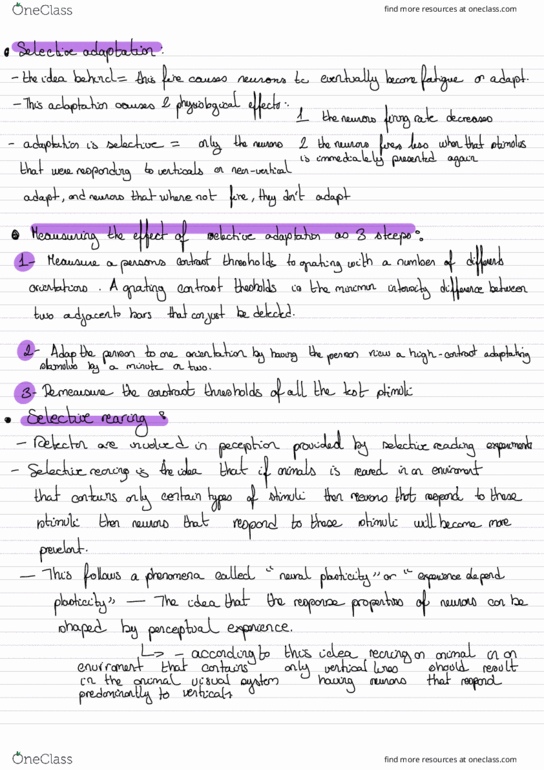 OneClass
find more resources at oneclass.com
Selective adaptation:
- the idea behind = this fire causes neurons to eventually become fatigue or adapt.
- This adaptation causes 2 physiological effects:
1 the neurons firing rate decreases
- adaptation is selective = only the neurons
2 the neuron fires less when that stimulus
is immediately presented again
that were responding to verticals or non-vertical
adapt, and neurons that where not fire, they don't adapt
Meausuring the effect of selective adaptation as 3 steeps:
1- Meausure a persons contract thresholds to grating with a number of differents
orientations. A grating contract thesholds is the minimum intensity difference between
two adjacents bars that can just be detected.
2- Adap the person to one orientation by having the person view a high-contract adaptating
stimulus by a minute or two.
3- Remeausure the contract thresholds of all the test stimuli
Selective rearing:
- Detector are involved in perception provided by selective reading experiments
- Selective rearing is the idea that if animals is reared in an enviroment
that contains only certain types of stimuli then neurons that respond to these
stimuli then neurons that respond to these stimuli will become more
prevelent.
- This follows a phenomena called "neural plasticity" or "experience depend
plasticity" - The idea that the response properties of neurons can be
shaped by perceptual experience.
- according to this idea rearing an animal in an
enviroment that contains only vertical lines should result
in the animal visual system having neurons that respond
predominantly to verticals
OneClass
find more resources at oneclass.com